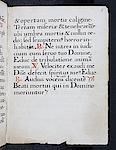 & opertam mortis caligine
Terram miserię & tenebrarū
ubi umbra mortis & nullus or-
do: sed sempiternꝰ horror in-
habitat. Ne intres in iudi-
cium cum seruo tuo Domine.
Educ de tribulatione animā
meam. Velociter exaudi me
Dñe defecit spiritus meus
Educ
Beati mortui qui in Domino
moriuntur